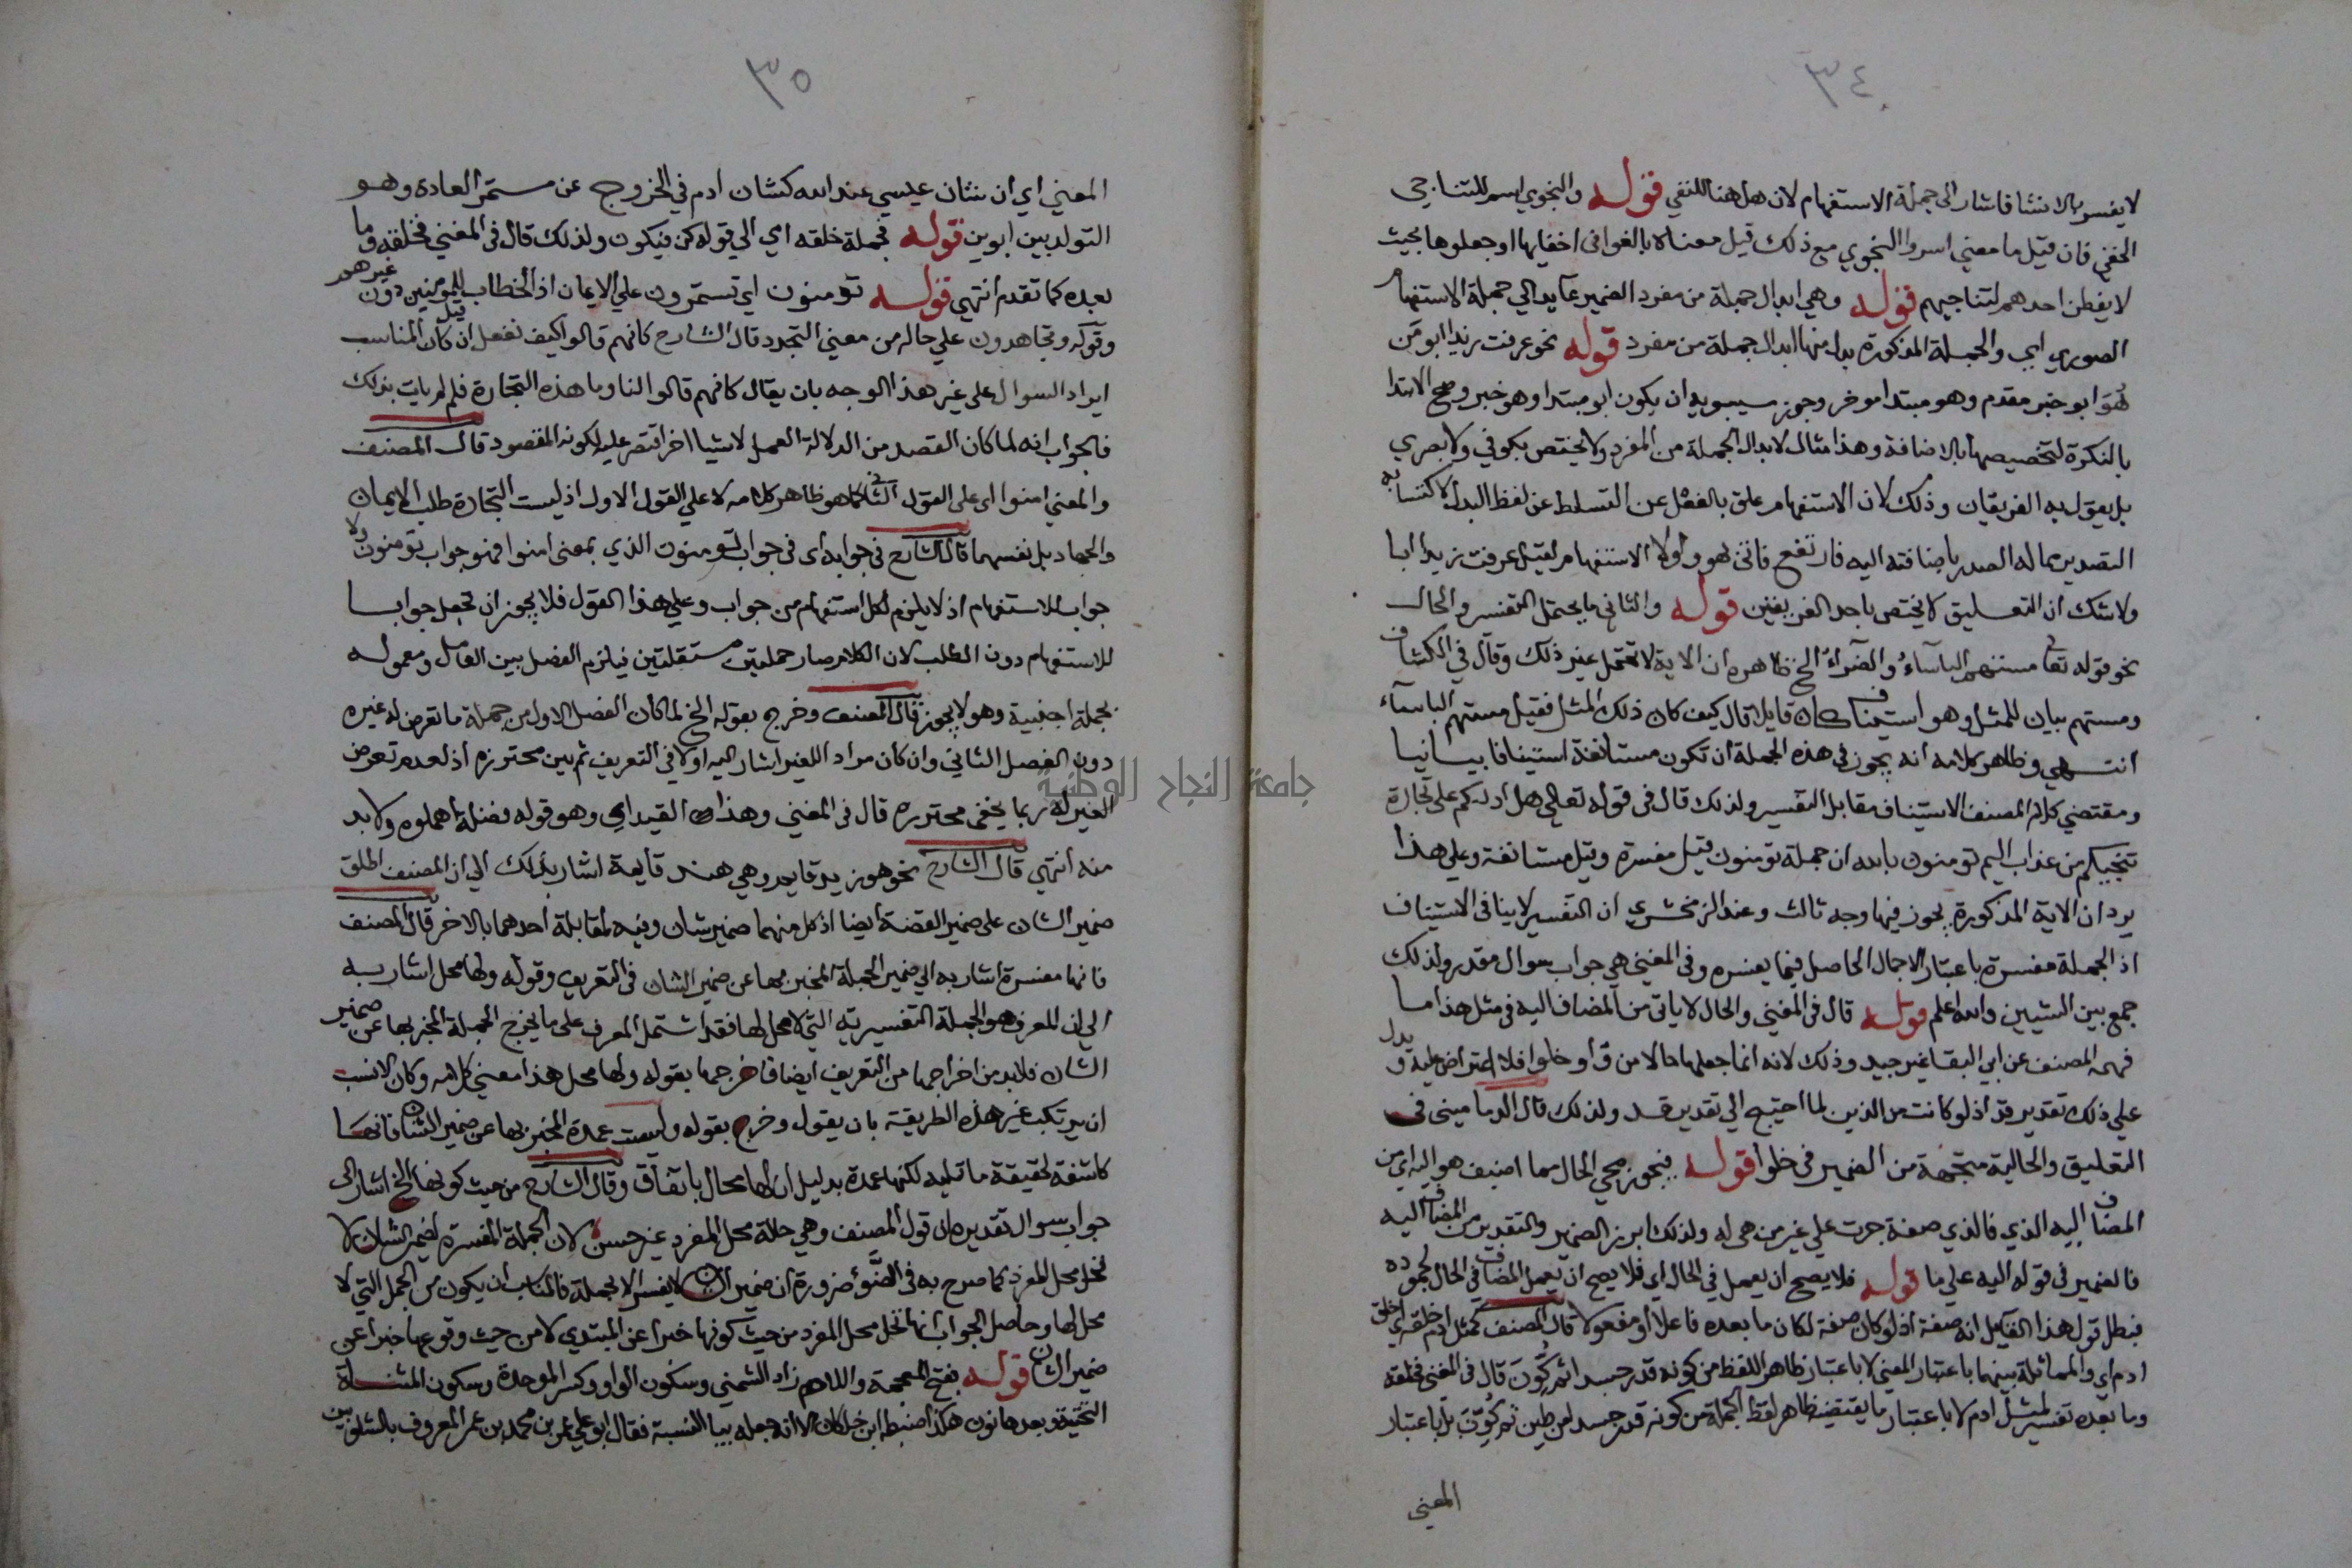 ٣٤
لا يفسر بالانشا فاشار الى جملة الاستفهام لان هل هنا للنفي قوله والنجوي اسم للتناجي
الخفي فان قيل ما معني اسروا النجوي مع ذلك قيل معناه بالغوا في اخفايها او جعلوها بحيث
لا يفطن احدهم لتناجيهم قوله وهي ابدال جملة من مفرد الضمير عايد الي جملة الاستفهام
الصوري اي والجملة المذكورة بدل منها ابدال جملة من مفرد قوله نحو عرفت زيدا ابو من
هو ابو خبر مقدم وهو مبتدا موخر وجوز سيبويه ان يكون ابو مبتدا وهو خبر وصح الابتدا
بالنكرة لتخصيصها بالاضافة وهذا مثال لابدال الجملة من المفرد ولا يختص بكوفي ولا بصري
بل يقول به الفريقان وذلك لان الاستفهام علق بالفعل عن التسلط عن لفظ البدل لاكتسابه
التصدير مما له الصدر باضافته اليه فارتفع فاتي لهو ولولا الاستفهام لقيل عرفت زيدا ابا
ولا شك ان التعليق لا يختص باحد الفريقين قوله والثاني ما يحتمل التفسير والحال
نحو قوله تعالى مستهم الباساء والضراء الخ ظاهره ان الاية لا تحتمل غير ذلك وقال في الكشاف
ومستهم بيان للمثل وهو استيناف كان قايلا قال كيف كان ذلك المثل فقيل مستهم الباساء
انتهي وظاهر كلامه انه يجوز في هذه الجملة ان تكون مستانفة استينافا بيانيا
ومقتضي كلام المصنف الاستيناف مقابل التفسير ولذلك قال في قوله تعالى هل ادلكم على تجارة
تنجيكم من عذاب اليم تومنون بالله ان جملة تومنون قيل مفسرة وقيل مستانفة وعلي هذا
يرد ان الاية المذكورة يجوز فيها وجه ثالث وعند الزمخشري ان التفسير لا ينافى الاستيناف
اذ الجملة مفسرة باعتبار الاجمال الحاصل فيما يفسره وفي المغني هي جواب سوال مقدر ولذلك
جمع بين الشيين والله اعلم قوله قال في المغني والحال لا ياتي من المضاف اليه في مثل هذا ما
فهمه المصنف عن ابي البقا غير جيد وذلك لانه انما جعلها حالا من واو خلوا فلا اعتراض عليه ويدل
علي ذلك تقدير قد اذ لو كانت من الذين لما احتيج الي تقدير قد ولذلك قال الدماميني في
التعليق والحالية متجهة من الضمير في خلوا قوله فيجوز مجي الحال مما اضيف هو اليه اي من
المضاف اليه الذي فالذي صفة جرت علي غير من هي له ولذلك ابرز الضمير والتقدير من المضاف اليه
فالضمير في قوله اليه علي ما قوله فلا يصح ان يعمل في الحال اي فلا يصح ان يعمل المضاف في الحال لجموده
فبطل قول هذا القايل انه صفة اذ لو كان صفة لكان ما بعده فاعلا او مفعولا قال المصنف كمثل ادم خلقه اي خلق
ادم اي والمماثلة بينهما باعتبار المعني لا باعتبار ظاهر اللفظ من كونه قدر جسد ائم كون قال في المغني فخلقه
وما بعده تفسير لمثل ادم لا باعتبار ما يقتضيه ظاهر لفظ الجملة من كونه قدر جسد من طين ثم كون بل باعتبار
المعني
٣٥
المعني اي ان شان عيسي عند الله كشان ادم في الخروج عن مستمر العادة وهو
التولد بين ابوين قوله فجملة خلقه اي الي قوله كن فيكون ولذلك قال في المغني فخلقه وما
بعده كما تقدم انتهي قوله تومنون اي تستمرون علي الايمان اذ الخطاب للمومنين دون غيرهم
وقوله وتجاهدون علي حاله من معني التجدد قال الشارح كانهم قالوا كيف نفعل ان كان المناسب
ايراد السوال على غير هذا الوجه بان يقال كانهم قالوا لنا وما هذه التجارة فلم لم يات بذلك
فالجواب انه لما كان القصد من الدلالة العمل لا شيا اخر اقتصر عليه لكونه المقصود قال المصنف
والمعني امنوا اي على القول الثاني كما هو ظاهر كلامه لا علي القول الاول اذ ليست التجارة طلب الايمان
والجهاد بل نفسهما قال الشارح في جوابه اي في جواب تومنون الذي بمعنى امنوا فهو جواب تومنون ولا
جواب للاستفهام اذ لا يلزم لكل استفهام من جواب وعلي هذا القول فلا يجوز ان تجعل جوابا
للاستفهام دون الطلب لان الكلام صار جملتين مستقلتين فيلزم الفصل بين العامل ومعموله
بجملة اجنبية وهو لا يجوز قال المصنف وخرج بقوله الخ لما كان الفصل الاول من جملة ما تعرض له غيره
دون الفصل الثاني وان كان مراد اللغير اشار اليه اولا في التعريف ثم بين محترزه اذ لعدم تعرض
الغير له ربما يخفى محترزه قال في المغني وهذا القيد اي وهو قوله فضلة اهملوه ولا بد
منه انتهي قال الشارح نحو هو زيد قايم وهي هند قايمة اشار بذلك الي ان المصنف اطلق
ضمير الشان على ضمير القصة ايضا اذ كل منهما ضمير شان وفيه مقابلة احدهما بالاخر قال المصنف
فانها مفسرة اشار به الي ضمير الجملة المخبر بها عن ضمير الشان في التعريف وقوله ولها محل اشار به
الي ان المعرف هو الجملة التفسيرية التي لا محل لها فقد اشتمل المعرف على ما يخرج الجملة المخبر بها عن ضمير
الشان فلا بد من اخراجها من التعريف ايضا فاخرجها بقوله ولها محل هذا معني كلامه وكان الانسب
ان يرتكب غير هذه الطريقة بان يقول وخرج بقوله وليست عمدة المخبر بها عن ضمير الشان فانها
كاشفة لحقيقة ما تليه لكنها عمدة بدليل ان لها محال باتفاق وقال الشارح من حيث كونها الخ اشار الى
جواب سوال تقديره ان قول المصنف وهي حالة محل المفرد غير حسن لان الجملة المفسرة لضمير الشان لا
تحل محل المفرد كما صرح به في الضوء ضرورة ان ضمير الشان لا يفسر الا بجملة فالمناسب ان يكون من الجمل التي لا
محل لها وحاصل الجواب انها تحل محل المفرد من حيث كونها خبرا عن المبتدي لا من حيث وقوعها خبرا عن
ضمير الشان قوله بفتح المعجمة واللام زاد الشمني وسكون الواو وكسر الموحدة وسكون المثناة
التحتية وبعدها نون هكذا ضبطه ابن خلكان الا انه جعله بيا النسبة فقال ابو علي عمر بن محمد بن عمر المعروف بالشلوبين
جامعة النجاح الوطنية